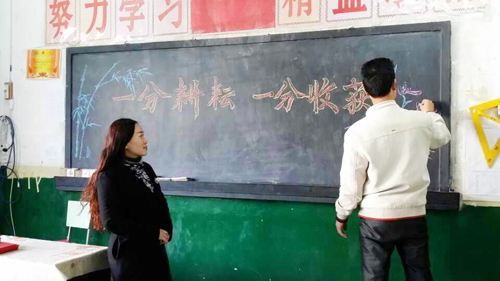 努力学习 精益
一分耕耘 一分收获